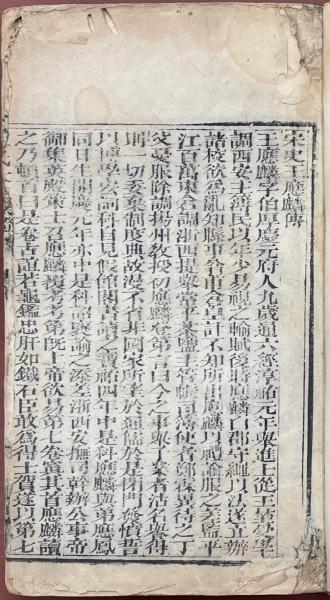 宋史王應麟傳
王應麟字伯厚慶元府人九歲通六經淳祐元年舉進士從王埜受學
調西安主簿民以年少易視之輸賦後時應麟白郡守繩以法遂立辦
諸校欲爲亂知縣事翁甫倉皇計不知所出應麟以禮諭服之差監平
江百萬東倉調浙西提舉常平茶鹽主管帳司部使者鄭霖異待之丁
父憂服除調揚州教授初應麟登第言曰今之事舉子業者沽名譽得
則一切委棄制度典故漫不省非國家所望於通儒於是閉門發憤誓
以博學宏詞科自見假館閣書讀之寶祐四年中是科應麟與弟應鳳
同日生開慶元年亦中是科詔褒諭之添差浙西安撫司幹辦公事帝
御集英殿策士召應麟覆考考第既上帝欲易第七卷寘其首應麟讀
之乃頓首曰是卷古誼若龜鏡忠肝如鐵石臣敢爲得士賀遂以第七